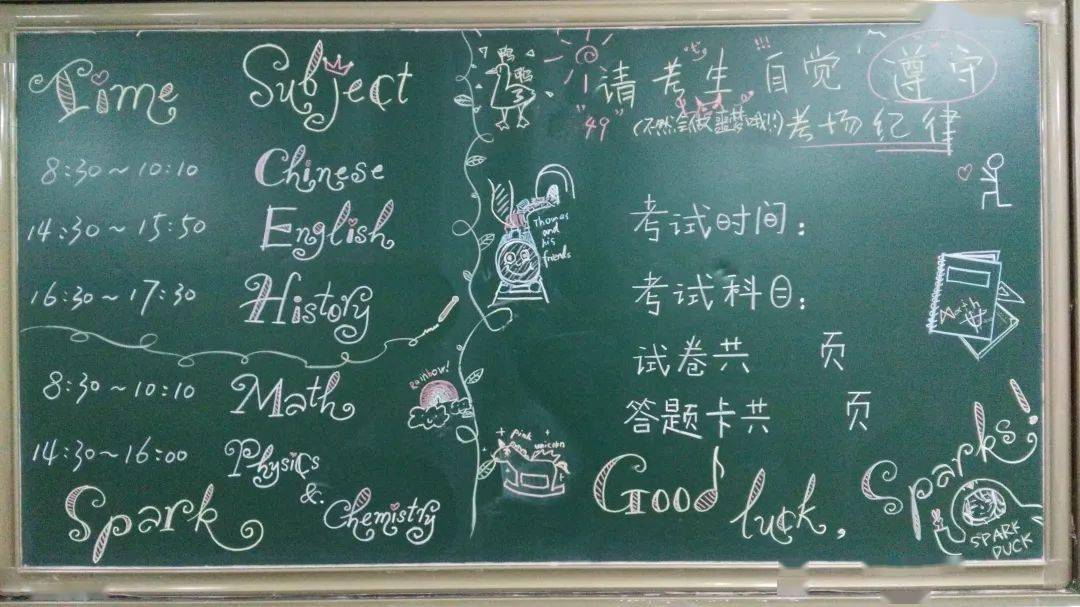 Time Subject
8:30~10:10 Chinese
14:30~15:50 English
16:30~17:30 History
8:30~10:10 Math
14:30~16:00 Physics
& Chemistry
Spark
鸭
鸭
Thomas
and
his
friends
Rainbow!
Pink
unicorn
"七" !!!
请考生自觉遵守
"49" (不然会做噩梦哦!!) 考场纪律
考试时间:
考试科目:
试卷共 页
答题卡共 页
Math
Good luck, Sparks!
SPARK
DUCK